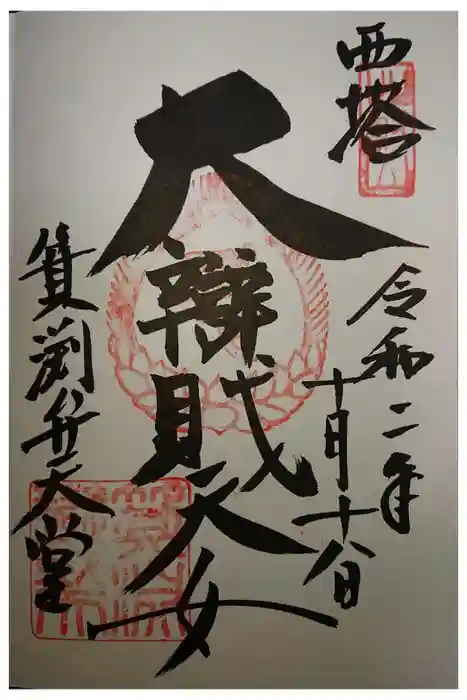 西塔
令和二年
十月十八日
大辯財天女
箕淵弁天堂